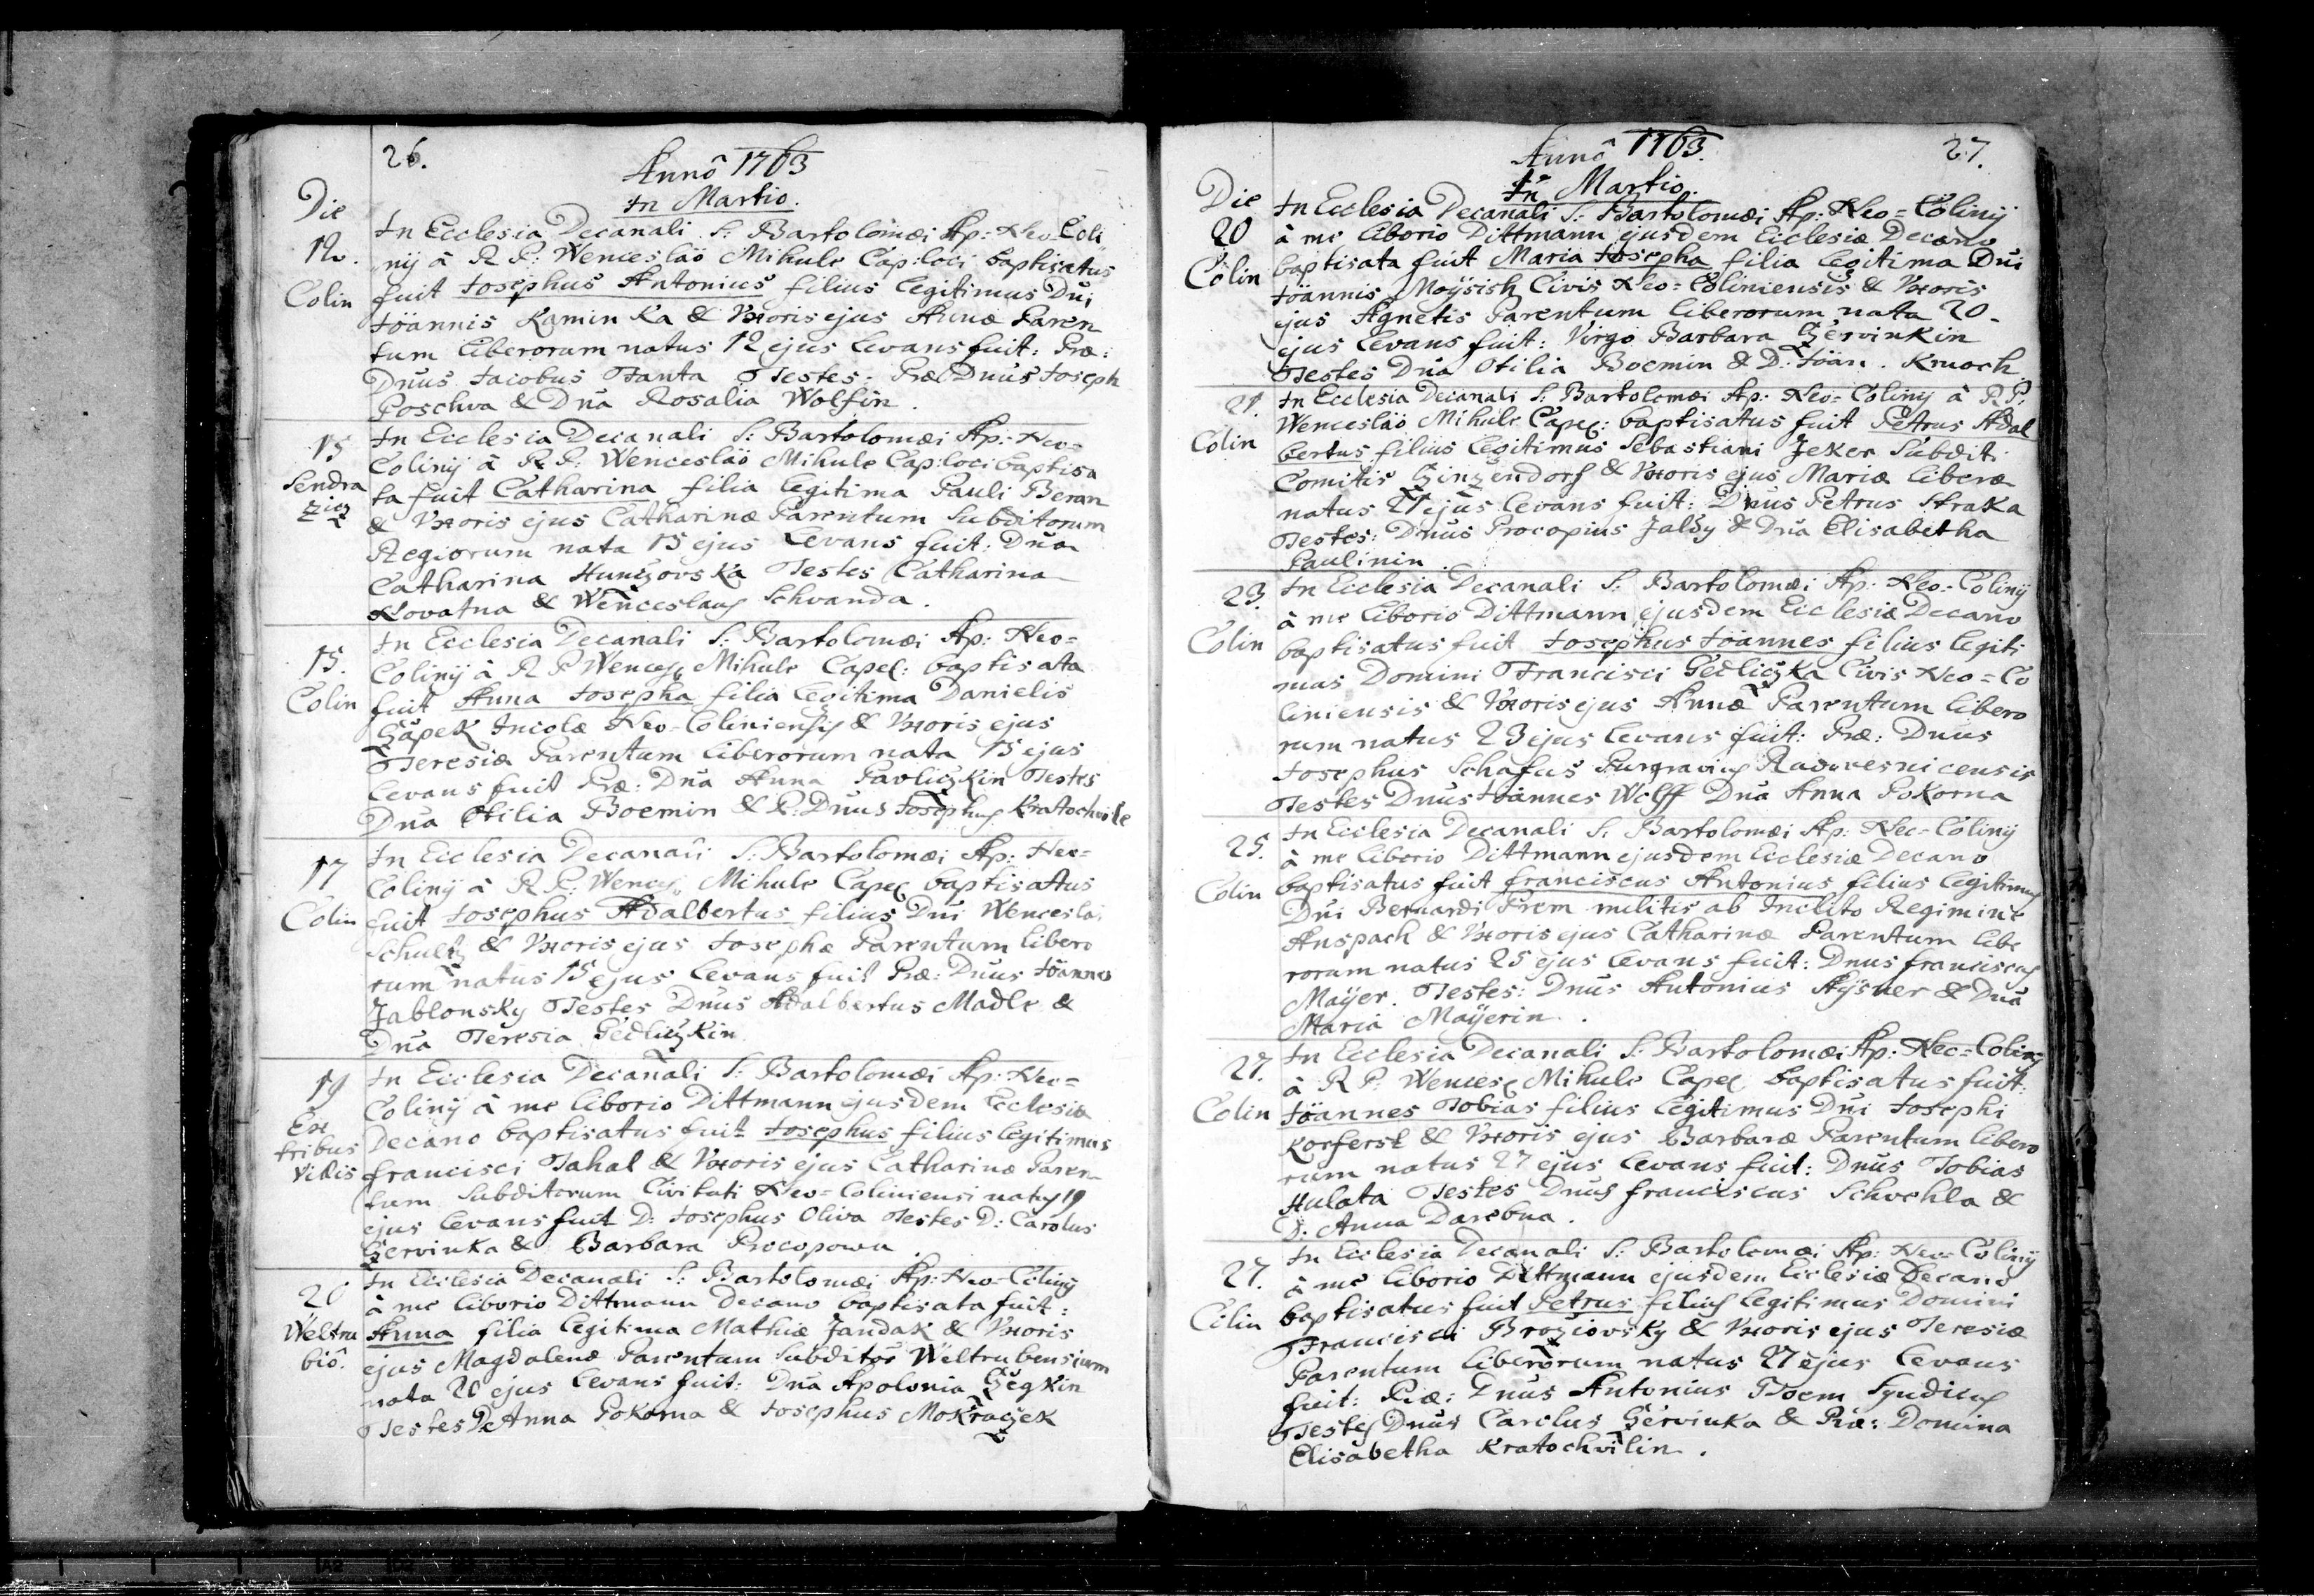 26.
Annô 1763
In Martio.
Die
12.
Colin
In Ecclesia Decanali S: Bartolomæi Ap: Neo-Coli
nij à R P: Wenceslao Mihule Cap: loci baptisatus
fuit Josephus Antonius filius legitimus Dni
Joannis Kaminka & Uxoris ejus Annæ Paren
tum liberorum natus 12 ejus Levans fuit: Præ:
Dnus Jacobus Franta Testes: Præ Dnus Joseph
Poschva & Dna Rosalia Wolfin.
15
Sendra
zicz
In Ecclesia Decanali S: Bartolomæi Ap: Neo=
Colinij à R P: Wenceslao Mihule Cap: loci baptisa
ta fuit Catharina filia legitima Pauli Beran
& Uxoris ejus Catharinæ Parentum Subditorum
Regiorum nata 15 ejus Levans fuit: Dna
Catharina Hunczovska Testes Catharina
Kovatna & Wenceslaus Schvanda.
15.
Colin
In Ecclesia Decanali S: Bartolomæi Ap: Neo=
Colinij à R P Wences: Mihule Capel: baptisata
fuit Anna Josepha filia legitima Danielis
Czapek Incolæ Neo-Coliniensis & Uxoris ejus
Teresiæ Parentum liberorum nata 15 ejus
Levans fuit Præ: Dna Anna Pavliczkin Testes
Dna Otilia Boemin & P: Dnus Josephus Kratochvile
17
Colin
In Ecclesia Decanali S: Bartolomæi Ap: Neo=
Colinij à R P: Wences: Mihule Capel baptisattus
fuit Josephus Adalbertus filius Dni Wenceslai
Schultz & Uxoris ejus Josephæ Parentum libero
rum natus 15 ejus Levans fuit Præ: Dnus Joannes
Jablonsky Testes Dnus Adalbertus Madle &
Dna Teresia Pedliczkin
19
Ex
tribus
Villis
In Ecclesia Decanali S: Bartolomæi Ap: Neo=
Colinij à me Liborio Dittmann ejusdem Eclesiæ
Decano baptisatus fuit Josephus filius legitimus
Francisci Tahal & Uxoris ejus Catharinæ Paren
tum Subditorum Civitati Neo=Coliniensi natus 19
ejus Levans fuit D: Josephus Oliva Testes D: Carolus
Czervinka & Barbara Procopowa.
20
Weltru
biô.
In Ecclesia Decanali S: Bartolomæi Ap: Neo-Colinij
à me Liborio Dittmann Decano baptisata fuit:
Anna filia legitima Mathiæ Jandak & Uxoris
ejus Magdalenæ Parentum Subditor Weltrubensium
nata 20 ejus Levans fuit: Dna Apolonia Czegkin
Testes D: Anna Pokorna & Josephus Mokraczek
27.
Anno 1763.
In Martio.
Die
20
Colin
In Ecclesia Decanali S: Bartolomæi Ap: Neo=Colinij
à me Liborio Dittmann ejusdem Ecclesiæ Decano
baptisata fuit Maria Josepha filia legitima Dni
Joannis Moysish Civis Neo=Coliniensis & Uxoris
ejus Agnetis Parentum liberorum nata 20
ejus Levans fuit: Virgo Barbara Czervinkin
Testes Dna Otilia Boemin & D: Joan. Knoch
21.
Colin
In Ecclesia Decanali S: Bartolomæi Ap: Neo=Colinij à R P.
Wenceslao Mihule Capel: baptisatus fuit Petrus Adal
bertus filius legitimus Sebastiani Jeker Subdit:
Comitis Czinzendorf & Uxoris ejus Mariæ liberæ
natus 21 ejus Levans fuit: Dnus Petrus Straka
Testes: Dnus Procopius Jaldy & Dna Elisabetha
Paulinin.
23.
Colin
In Ecclesia Decanali S: Bartolomæi Ap: Neo-Colinij
à me Liborio Dittmann ejusdem Ecclesiæ Decano
baptisatus fuit Josephus Joannes filius legiti
mus Domini Francisci Pedliczka Civis Neo=Co
liniensis & Uxoris ejus Annæ Parentum libero
rum natus 23 ejus Levans fuit: Præ: Dnus
Josephus Schafus Purgravius Radovesnicensis
Testes Dnus Joannes Wolff Dna Anna Pokorna
25.
Colin
In Ecclesia Decanali S: Bartolomæi Ap: Neo-Colinij
à me Liborio Dittmann ejusdem Ecclesiæ Decano
baptisatus fuit Franciscus Antonius filius legitimus
Dni Bernardi Prem militis ab Inclito Regimine
Anspach & Uxoris ejus Catharinæ Parentum libe
rorum natus 25 ejus Levans fuit: Dnus Franciscus
Mayer. Testes: Dnus Antonius Aysner & Dna
Maria Mayerin.
27.
Colin
In Ecclesia Decanali S: Bartolomæi Ap: Neo=Colinij
à R P: Wences: Mihule Capel baptisatus fuit:
Joannes Tobias filius legitimus Dni Josephi
Korferst & Uxoris ejus Barbaræ Parentum libero
rum natus 27 ejus Levans fuit: Dnus Tobias
Hulata Testes Dnus Franciscus Schvehla &
D. Anna Darebna.
27.
Colin
In Ecclesia Decanali S: Bartolomæi Ap: Neo-Colinij
à me Liborio Dittmann ejusdem Ecclesiæ Decano
baptisatus fuit Petrus filius legitimus Domini
Francisci Broziovsky & Uxoris ejus Teresiæ
Parentum liberorum natus 27 ejus Levans
fuit: Præ: Dnus Antonius Boem Syndicus
Testes Dnus Carolus Czervinka & Præ: Domina
Elisabetha Kratochvilin.